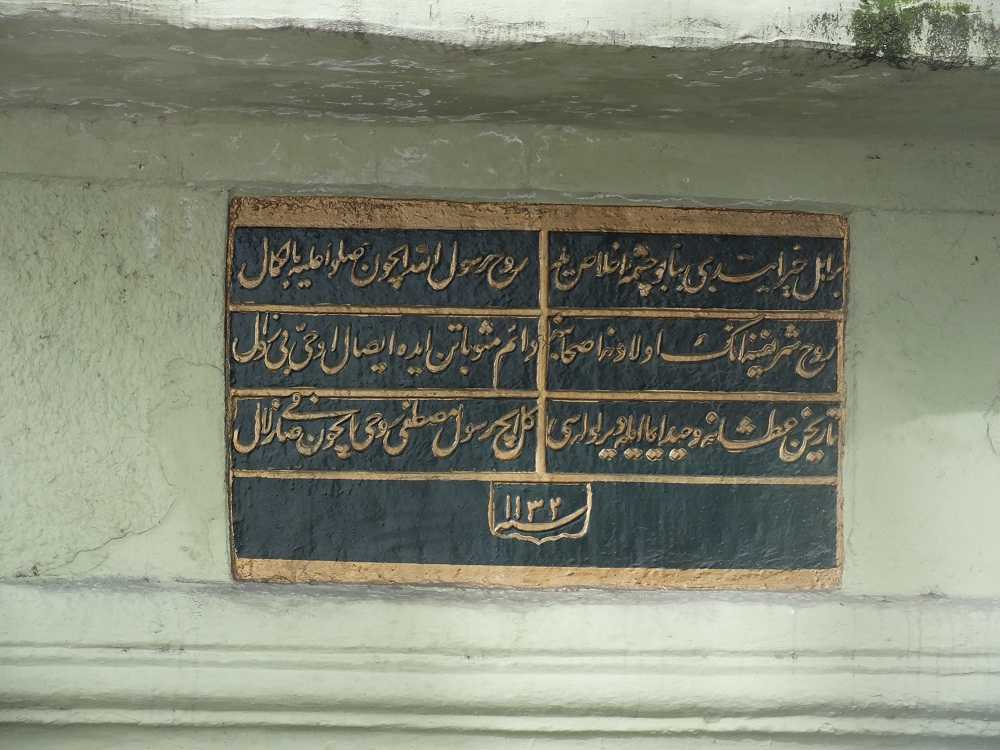 بر اهل خیر ایتدی بنا بو چشمهٔ اخلاص ایله
روح رسول الله ایچون صلوا علیه بالکمال
روح شریفینه انک اولادنه اصحابنه
دائم مثوباتن ایده ایصال او حیّ بی زوال
تاریخن عطشانه وحید ایما ایله دیر لوله سی
کل ایچ رسول مصطفی روحی ایچون صافی زلال
سنه ١١٣٢